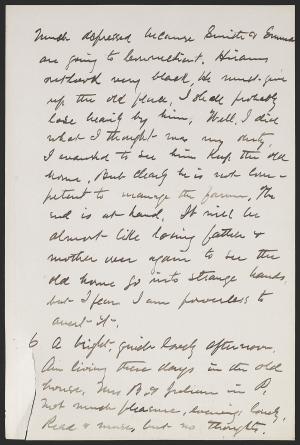 Much depressed because Smith & Emma
are going to Connecticut. Hiram's
outlook very black, He must give
up the old place, I shall probably
lose heavily by him, Well, I did
what I thought was my duty,
I wanted to see him keep the old
home, But clearly he is not com-
petent to manage the farm, The
end is at hand. It will be
almost like losing father &
mother over again to see the
old home go into strange hands,
but I fear I am powerless to
avert it.
6 A bright lovely afternoon.
Am living these days in the old
house, Mrs B & Julian in P
Not much pleasure, evenings lonely,
Read & muse, but no thoughts.